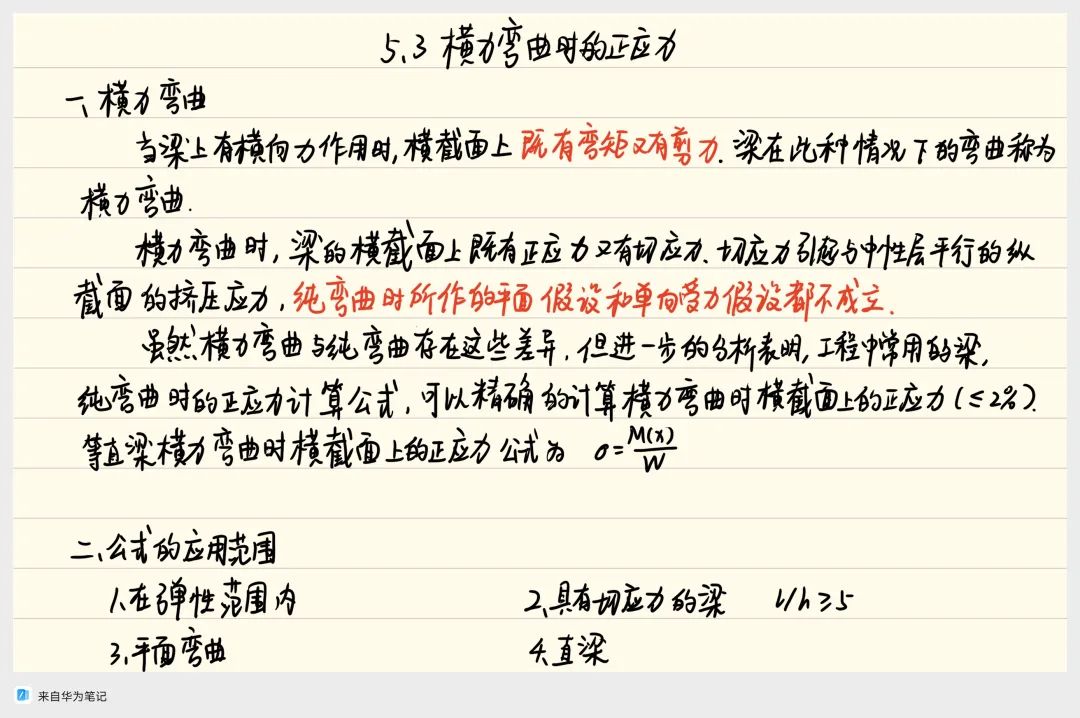 5.3 横力弯曲时的正应力
一、横力弯曲
当梁上有横向力作用时,横截面上既有弯矩又有剪力.梁在此种情况下的弯曲称为
横力弯曲.
横力弯曲时,梁的横截面上既有正应力又有切应力.切应力引起与中性层平行的纵
截面的挤压应力,纯弯曲时所作的平面假设和单向受力假设都不成立.
虽然横力弯曲与纯弯曲存在这些差异,但进一步的分析表明,工程中常用的梁,
纯弯曲时的正应力计算公式,可以精确的计算横力弯曲时横截面上的正应力(≤2%).
等直梁横力弯曲时横截面上的正应力公式为 σ=M(x)/W
二、公式的应用范围
1、在弹性范围内 2、具有切应力的梁 l/h≥5
3、平面弯曲 4、直梁
来自华为笔记